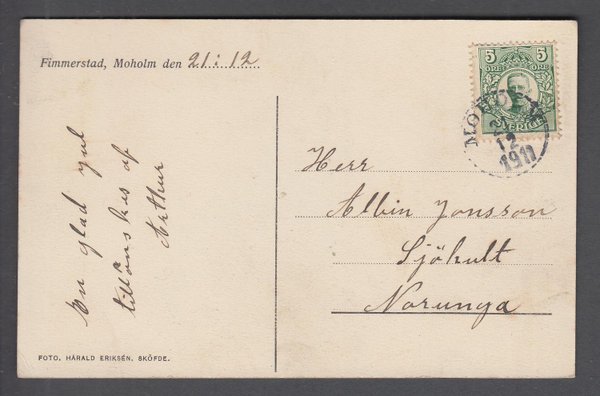 Fimmerstad, Moholm den 21 i 12
En glad jul
tillönskes af
Arthur
FOTO. HÄRALD ERIKSÉN. SKÖFDE.
5 5
ÖRE ÖRE
SVERIGE
MOHOLM
21
12
1911
Herr
Albin Jonsson
Sjöhult
Norunga